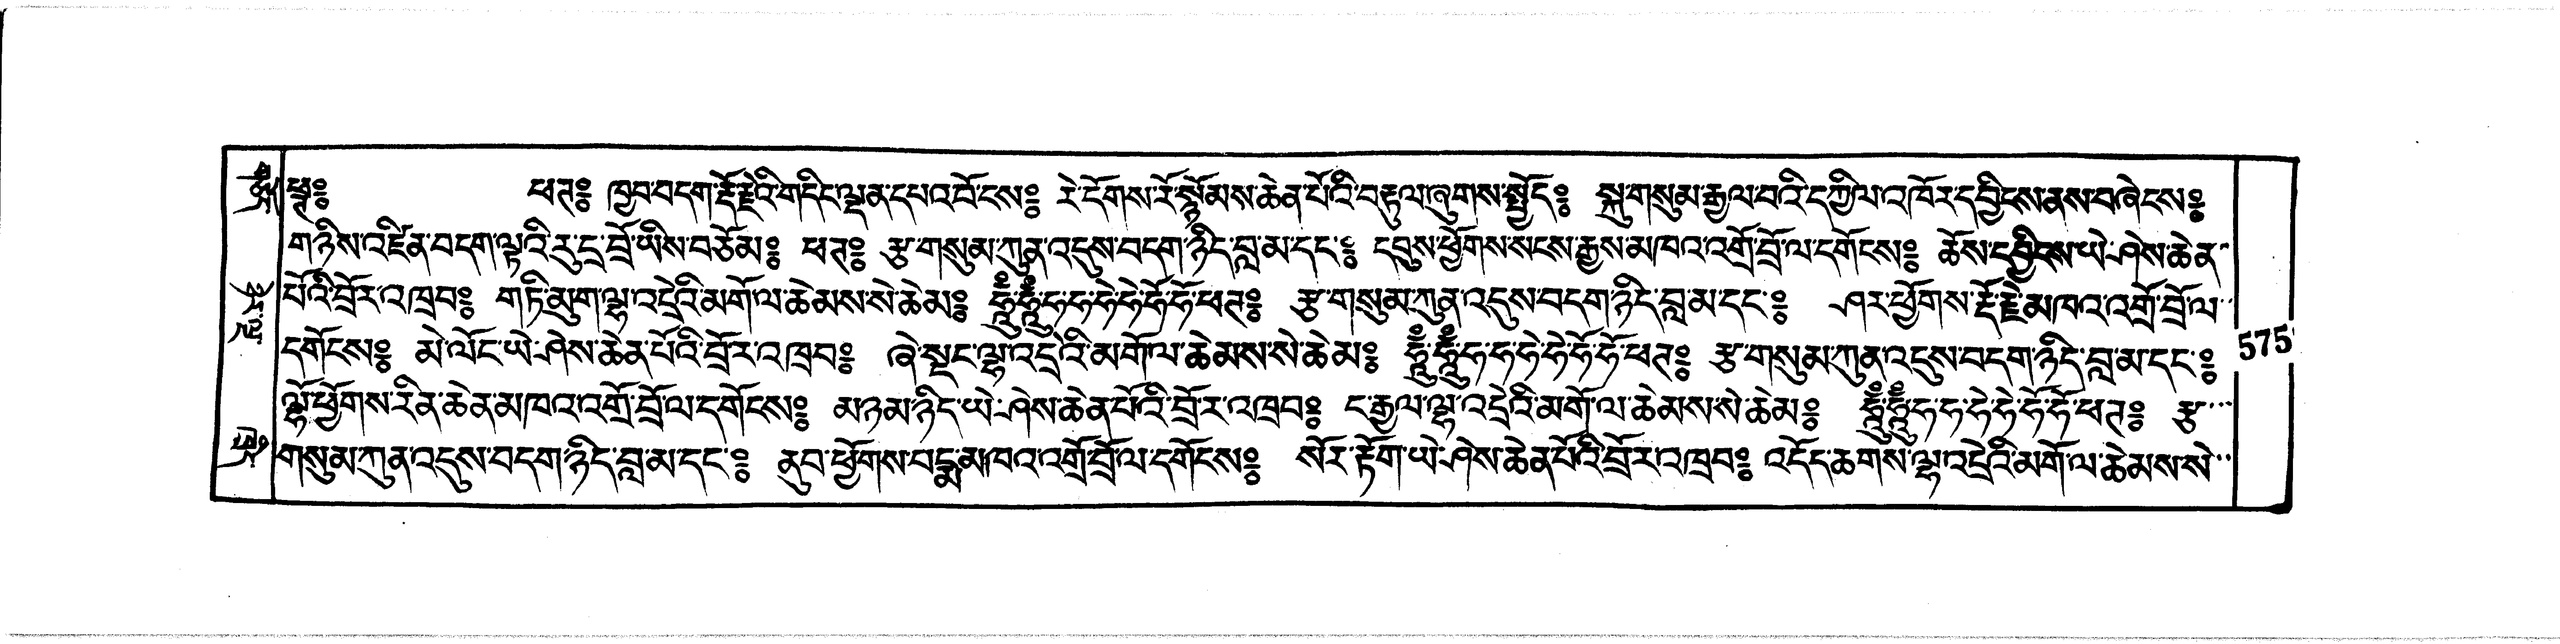 ཕྱུ༔ ཕཊ༔ ཁྱབ་བདག་རྡོ་རྗེའི་གདིང་ལྡན་དཔའ་བོ་ངས༔ རེ་དོགས་རོ་སྙོམས་ཆེན་པོའི་བརྟུལ་ཞུགས་སྤྱོད༔ སྐུ་གསུམ་རྒྱལ་བའི་དཀྱིལ་འཁོར་དབྱིངས་ནས་བཞེངས༔
གཉིས་འཛིན་བདག་ལྟའི་རུ་དྲ་བྲོ་ཡིས་བཅོམ༔ ཕཊ༔ རྩ་གསུམ་ཀུན་འདུས་བདག་ཉིད་བླ་མ་དང་༔ དབུས་ཕྱོགས་སངས་རྒྱས་མཁའ་འགྲོ་བྲོ་ལ་དགོངས༔ ཆོས་དབྱིངས་ཡེ་ཤེས་ཆེན་
པོའི་བྲོར་འཁྲབ༔ གཏི་མུག་ལྷ་འདྲེའི་མགོ་ལ་ཆེམས་སེ་ཆེམ༔ ཧཱུྃ་ཧཱུྃ་ཧ་ཧ་ཧེ་ཧེ་ཧོ་ཧོ་ཕཊ༔ རྩ་གསུམ་ཀུན་འདུས་བདག་ཉིད་བླ་མ་དང་༔ ཤར་ཕྱོགས་རྡོ་རྗེ་མཁའ་འགྲོ་བྲོ་ལ་
དགོངས༔ མེ་ལོང་ཡེ་ཤེས་ཆེན་པོའི་བྲོར་འཁྲབ༔ ཞེ་སྡང་ལྷ་འདྲེའི་མགོ་ལ་ཆེམས་སེ་ཆེམ༔ ཧཱུྃ་ཧཱུྃ་ཧ་ཧ་ཧེ་ཧེ་ཧོ་ཧོ་ཕཊ༔ རྩ་གསུམ་ཀུན་འདུས་བདག་ཉིད་བླ་མ་དང་༔
ལྷོ་ཕྱོགས་རིན་ཆེན་མཁའ་འགྲོ་བྲོ་ལ་དགོངས༔ མཉམ་ཉིད་ཡེ་ཤེས་ཆེན་པོའི་བྲོར་འཁྲབ༔ ང་རྒྱལ་ལྷ་འདྲེའི་མགོ་ལ་ཆེམས་སེ་ཆེམ༔ ཧཱུྃ་ཧཱུྃ་ཧ་ཧ་ཧེ་ཧེ་ཧོ་ཧོ་ཕཊ༔ རྩ་
གསུམ་ཀུན་འདུས་བདག་ཉིད་བླ་མ་དང་༔ ནུབ་ཕྱོགས་པདྨ་མཁའ་འགྲོ་བྲོ་ལ་དགོངས༔ སོར་རྟོག་ཡེ་ཤེས་ཆེན་པོའི་བྲོར་འཁྲབ༔ འདོད་ཆགས་ལྷ་འདྲེའི་མགོ་ལ་ཆེམས་སེ་
575